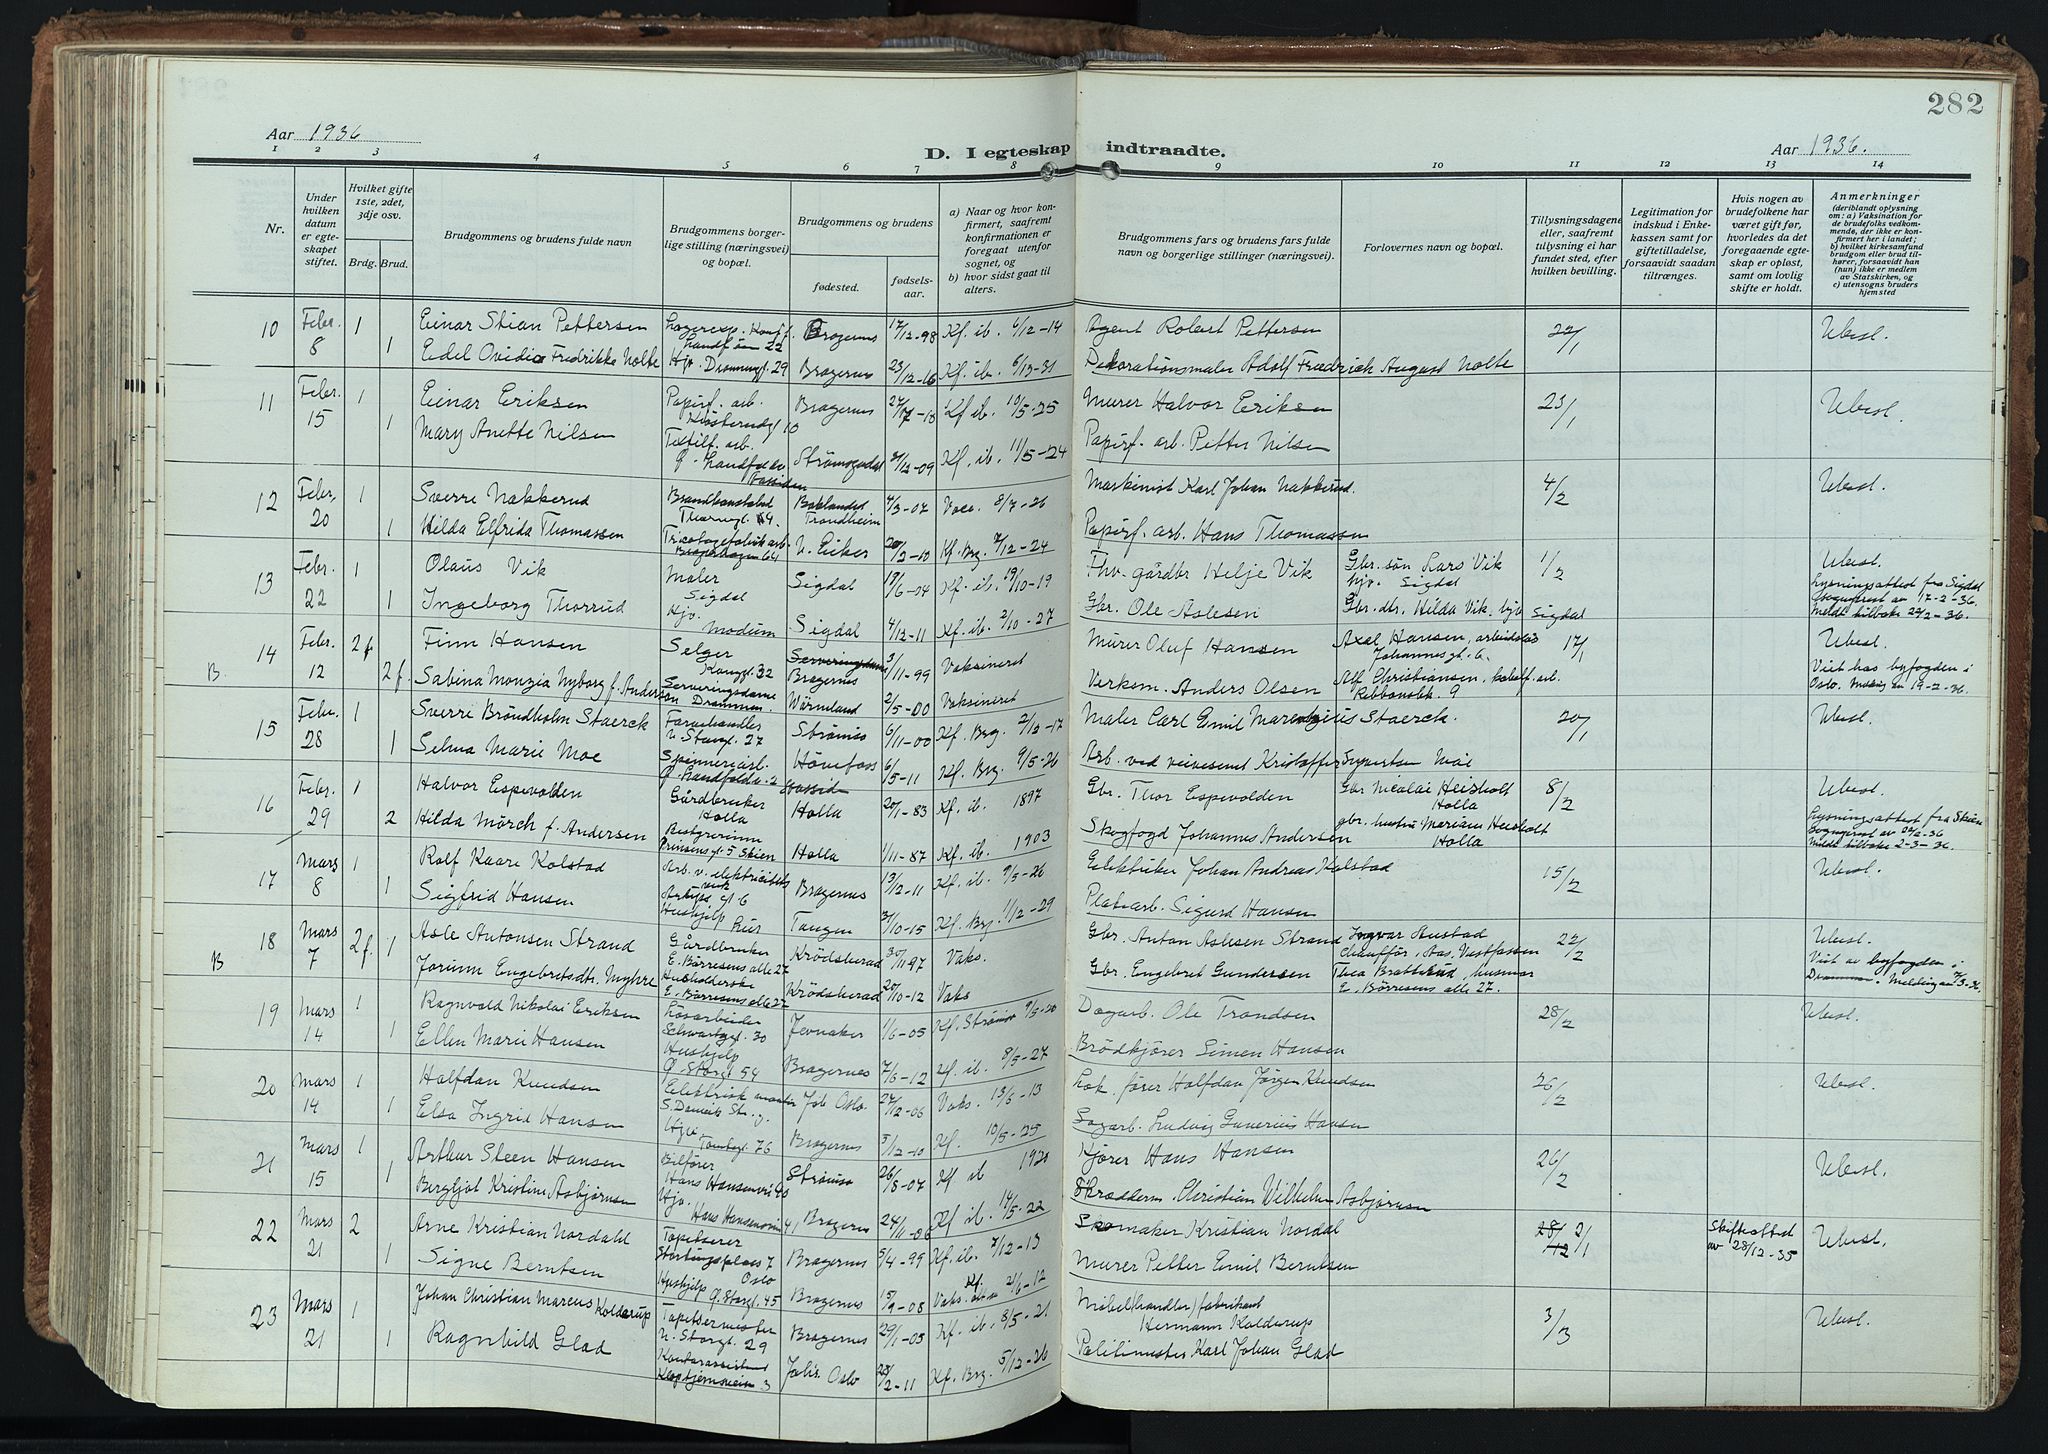 282
Aar 1936
D. I egteskap indtraadte.
Aar 1936.
1 2 3 4 5 6 7 8 9 10 11 12 13 14
Nr.
Under hvilken datum er egteskapet stiftet.
Hvilket gifte 1ste, 2det, 3dje osv.
Brdg. Brud.
Brudgommens og brudens fulde navn
Brudgommens borgerlige stilling (næringsvei) og bopæl.
Brudgommens og brudens
fødested. fødselsaar.
a) Naar og hvor konfirmert, saafremt konfirmationen er foregaat utenfor sognet, og
b) hvor sidst gaat til alters.
Brudgommens fars og brudens fars fulde navn og borgerlige stillinger (næringsvei).
Forlovernes navn og bopæl.
Tillysningsdagene eller, saafremt tillysning ei har fundet sted, efter hvilken bevilling.
Legitimation for indskud i Enkekassen samt for giftetilladelse, forsaavidt saadan tiltrænges.
Hvis nogen av brudefolkene har været gift før, hvorledes da det foregaaende egteskap er opløst, samt om lovlig skifte er holdt.
Anmerkninger
(deriblandt oplysning om: a) Vaksination for de brudefolks vedkommende, der ikke er konfirmert her i landet; b) hvilket kirkesamfund brudgom eller brud tilhører, forsaavidt han (hun) ikke er medlem av Statskirken, og c) utensogns bruders hjemsted
10 Febr. 8 1 Einar Stian Pettersen Bragernes 17/12-98 Kf. ib. 6/12-14 Agent Robert Pettersen 22/1 Ubesl.
1 Edel Ovidia Fredrikke Nolte Hjv. Bragernes 23/12-16 Kf. ib. 6/12-31 Dekorationsmaler Adolf Friedrich August Nolte
11 Febr. 15 1 Einar Eriksen Papirf. arb. Bragernes Kf ib. 10/5-25 Murer Halvor Eriksen 23/1 Ubesl.
1 Mary Anette Nilsen Textilf. arb. 2/12-09 Kf. ib. 11/5-24 Papirf. arb. Petter Nilsen
12 Febr. 20 1 Sverre Nakkerud Brandkonstabel Baklandet Trondheim 4/3-07 Vacc. 8/7-26 Maskinist Karl Johan Nakkerud. 4/2 Ubesl.
1 Hilda Elfrida Thomassen Tricotagefabrik arb. Ø. Eiker 20/2-10 Kf. Brg. 7/12-24 Papirf. arb. Hans Thomassen
13 Febr. 22 1 Olaus Vik Maler Sigdal Sigdal 19/6-04 Kf. ib. 19/10-19 Fhv. gårdbr Helje Vik Gbr. søn Lars Vik hjv. Sigdal 1/2 Ubesl.
Lysningsattest fra Sigdal Sogneprest av 17-2-36. Meldt tilbake 22/2-36.
1 Ingeborg Thorrud Hjv. Modum Sigdal 4/12-11 Kf. ib. 2/10-27 Gbr. Ole Aslesen Gbr. dtr. Hilda Vik hjv Sigdal
14 Febr. 12 2 f. Finn Hansen Selger Kongsgt. 32 Bragernes 3/11-99 Vaksineret Murer Oluf Hansen Axel Hansen, arbeidsløs Johannesgt. 6. 17/1 Ubesl.
B. 2 f. Sabina Monzia Nyborg f. Anderson Serveringsdame Drammen Wärmland 2/5-00 Vaksineret Verksm. Anders Olsen Alf Christiansen, Ribbonsbk. 9
Viet hos byfogden i Oslo. Melding av 19-2-36.
15 Febr. 28 1 Sverre Brøndholm Staerck Farvehandler Storgt. 27 Strømsø 6/11-00 Kf. Brg. 2/12-17 Maler Carl Emil Marentzius Staerck. 20/1 Ubesl.
1 Selma Marie Moe Spenneriarb. Hønefoss 6/5-11 Kf. Brg. 9/5-26 Arb. ved veivesenet Kristoffer Syvertsen Moe
16 Febr. 29 1 Halvor Espevolden Gårdbruker Holla Holla 20/1-83 Kf. ib. 1897 Gbr. Thor Espevolden Gbr Nicolai Heisholt Holla 8/2 Ubesl.
2 Hilda Mørch f. Andersen Bestyrerinne Prinsensgt. 5 Skien Holla 1/11-87 Kf. ib. 1903 Skogfogd Johannes Andersen gbr. hustru Mariane Heisholt Holla
Lysningsattest fra Skien Sogneprest av 22/2-36 Meldt tilbake 2-3-36.
17 Mars 8 1 Rolf Kaare Kolstad Arb. v. elektricitetsverk Bragernes 13/12-11 Kf. ib. 9/5-26 Elektriker Johan Andreas Kolstad 15/2 Ubesl.
1 Sigfrid Hansen Hushjelp her Tangen 31/10-15 Kf. Brg. 1/12-29 Platearb. Sigurd Hansen
18 Mars 7 2 f. Asle Antonsen Strand Gårdbruker E. Børresens alle 27 Krødsherad 30/11 97 Vaks. Gbr. Anton Aslesen Strand Ingvar Hustad Chauffør, Aas. Vestfossen 22/2 Ubesl.
B 1 Jorunn Engebretsdtr. Myhre Husholderske E. Børresens alle 27 Krødsherad 20/10-12 Vaks Gbr. Engebret Gundersen Thea Bratterud, husmor E. Børresens alle 27.
Viet av byfogden i Drammen. Melding av 7/3-36.
19 Mars 14 1 Ragnvald Nikolai Eriksen Løsarbeider Schwartzgt. 30 Jevnaker 1/6-05 Kf. Strømsø 9/5-20 Dagarb. Ole Trondsen 28/2 Ubesl.
1 Ellen Marie Hansen Hushjelp Ø Storgt 54 Bragernes 7/6-12 Kf. ib. 8/5-27 Brødkjører Simen Hansen
20 Mars 14 1 Halfdan Knudsen Elektrisk montør Job Oslo. 27/12-06 Vaks. 13/6-13 Lok. fører Halfdan Jørgen Knudsen 26/2 Ubesl.
1 Elsa Ingrid Hansen Hjv. Tomtegt. 76 Bragernes 3/12-10 Kf. 10/5-25 Sagarb. Ludvig Gunerius Hansen
21 Mars 15 1 Arthur Steen Hansen Bilfører Strømsø 26/8-07 Kf ib 1920 Kjører Hans Hansen 26/2 Ubesl.
1 Bergljot Kristine Asbjørnsen Hjv. 41 Bragernes 24/11-06 Kf ib. 14/5-22 Skrædderm. Christian Wilhelm Asbjørnsen
22 Mars 21 2 Arne Kristian Nordahl Tapetserer Stortingsplass 7 Oslo Bragernes 5/4-99 Kf. ib. 7/12-13 Skomaker Kristian Nordal 28/12 2/1 Skifteattest av 28/12-35 Ubesl.
1 Signe Berntsen Hushjelp Ø. Storgt. 45 Bragernes 15/9-08 Murer Petter Emil Berntsen
23 Mars 21 1 Johan Christian Marcus Kolderup Tapetsermester Storgt. 29 Bragernes 29/1-05 Kf ib. 8/5-21 Møbel(handler) fabrikant Hermann Kolderup 3/3 Ubesl.
1 Ragnhild Glad Kontorassistent 3 Oslo 28/2-11 Kf. Brg. 5/12-26 Politimester Karl Johan Glad